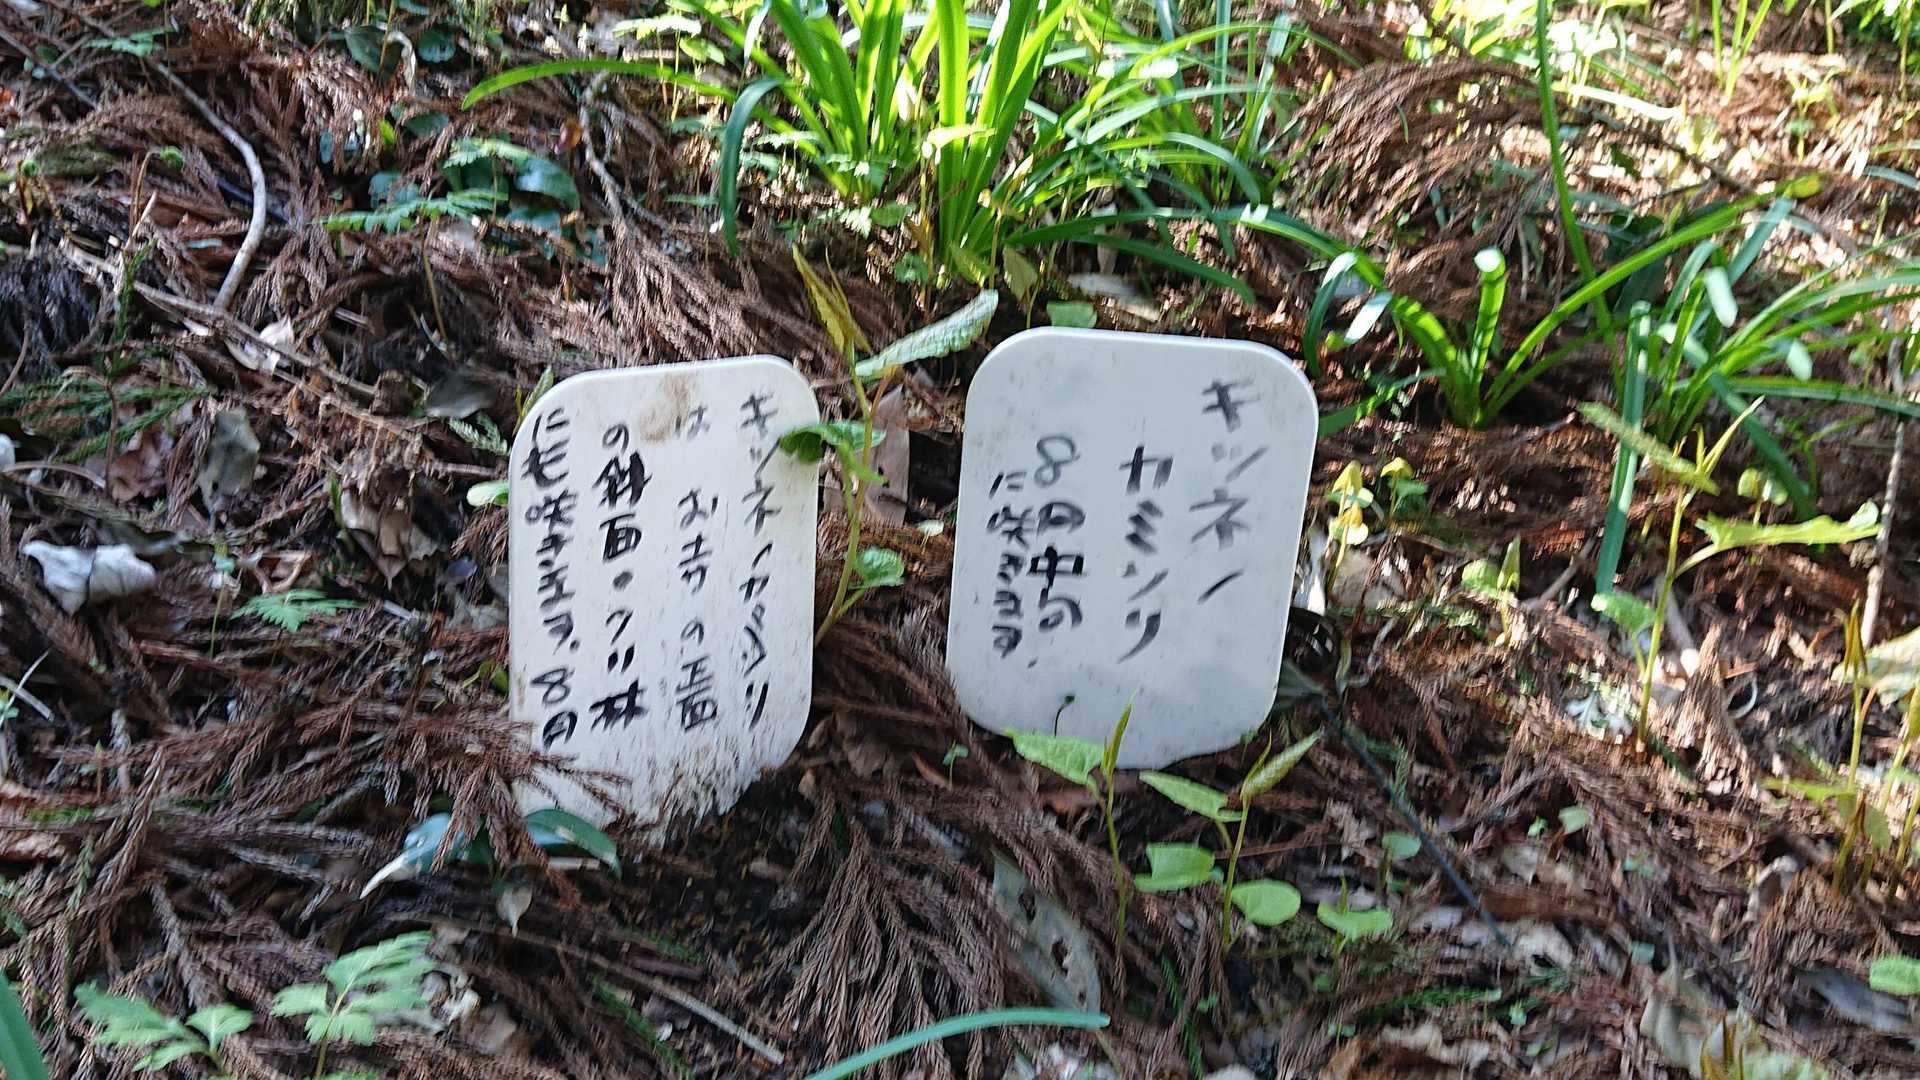 キツネノ
カミソリ
8月中旬
に咲きます
キツネノカミソリ
は お寺の正面
の斜面・クリ林
にも咲きます。8月